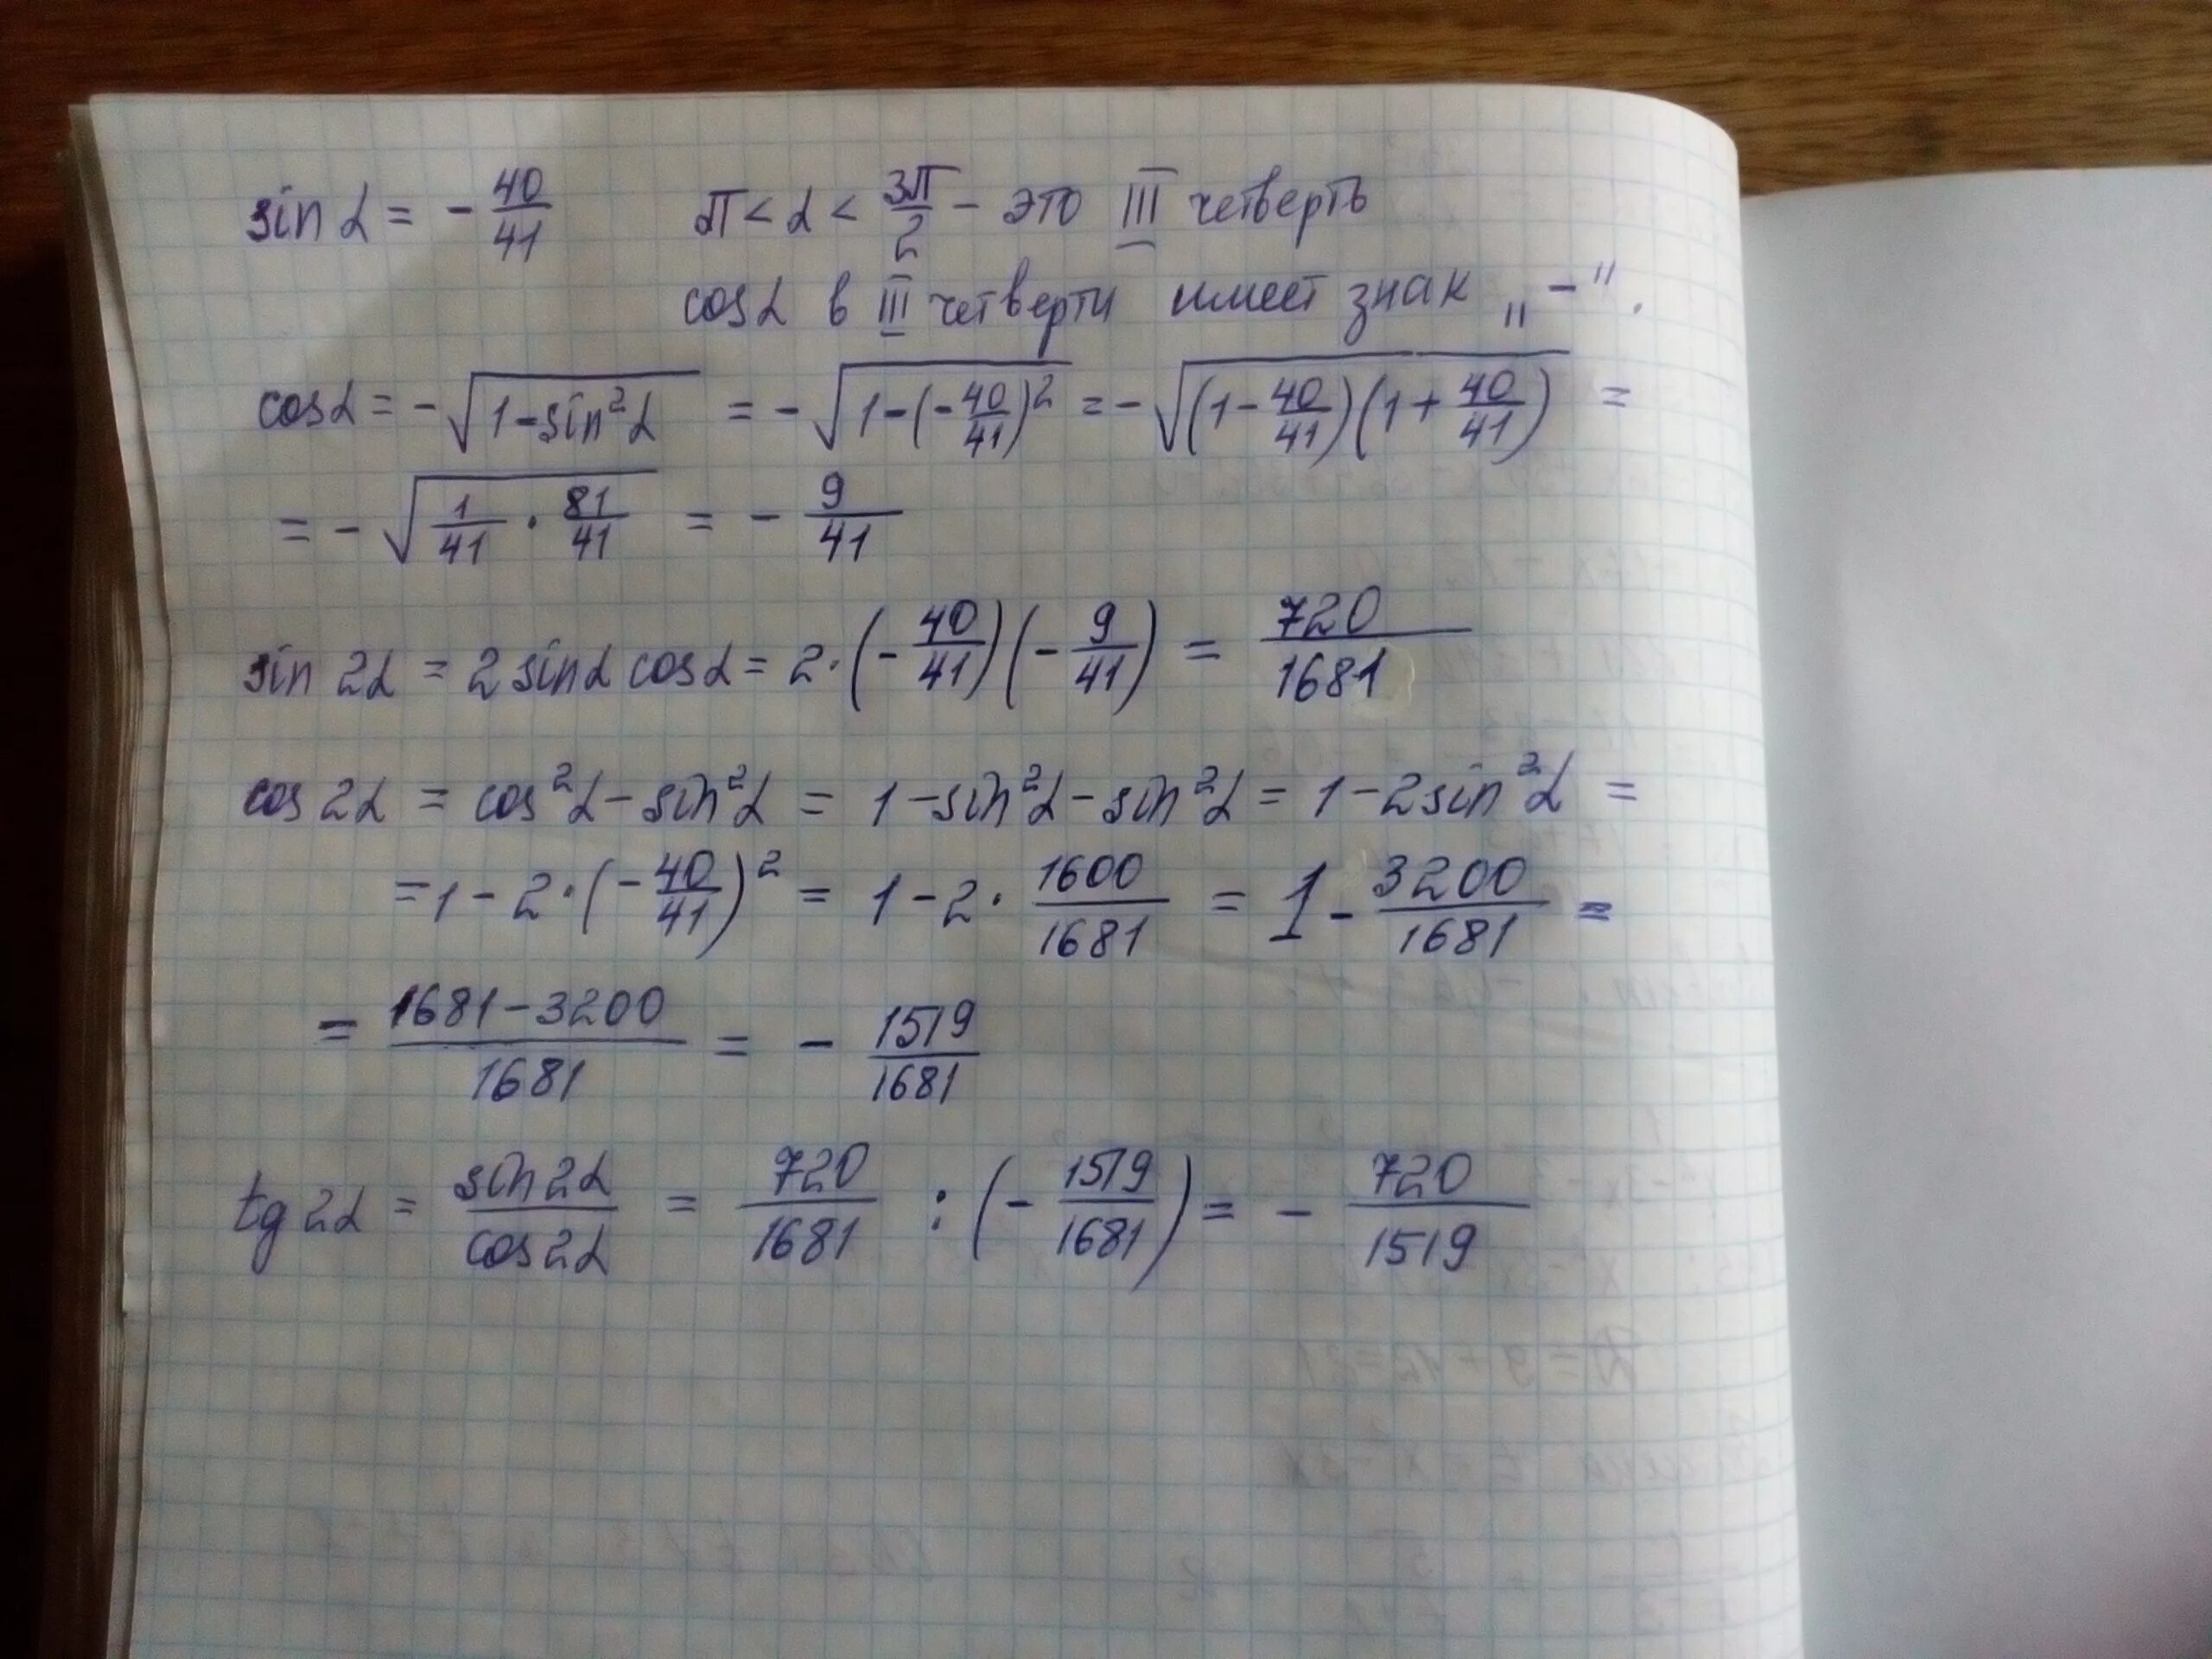 sin α = - 40/41   π < α < 3π/2 - это III четверть
cos α в III четверти имеет знак „-".
cos α = - √(1-sin²α) = - √(1-(-40/41)²) = - √((1-40/41)(1+40/41)) =
= - √(1/41 · 81/41) = - 9/41
sin 2α = 2 sin α cos α = 2·(-40/41)(-9/41) = 720/1681
cos 2α = cos²α - sin²α = 1 - sin²α - sin²α = 1 - 2sin²α =
= 1 - 2·(-40/41)² = 1 - 2· 1600/1681 = 1 - 3200/1681 =
= (1681-3200)/1681 = - 1519/1681
tg 2α = sin2α/cos2α = 720/1681 : (- 1519/1681) = - 720/1519